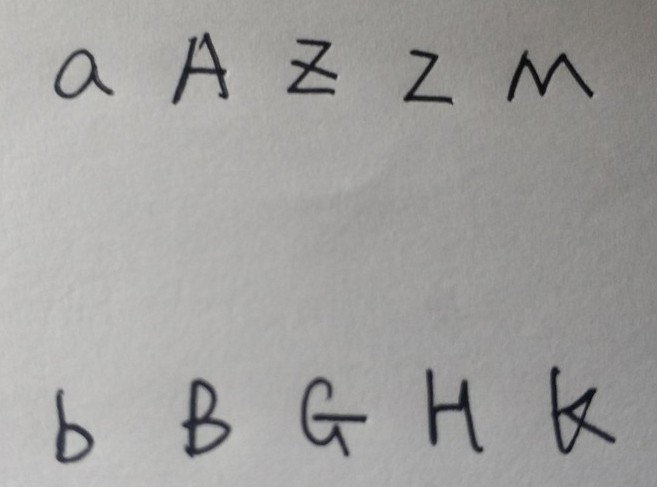 a A Z z M
b B G H K